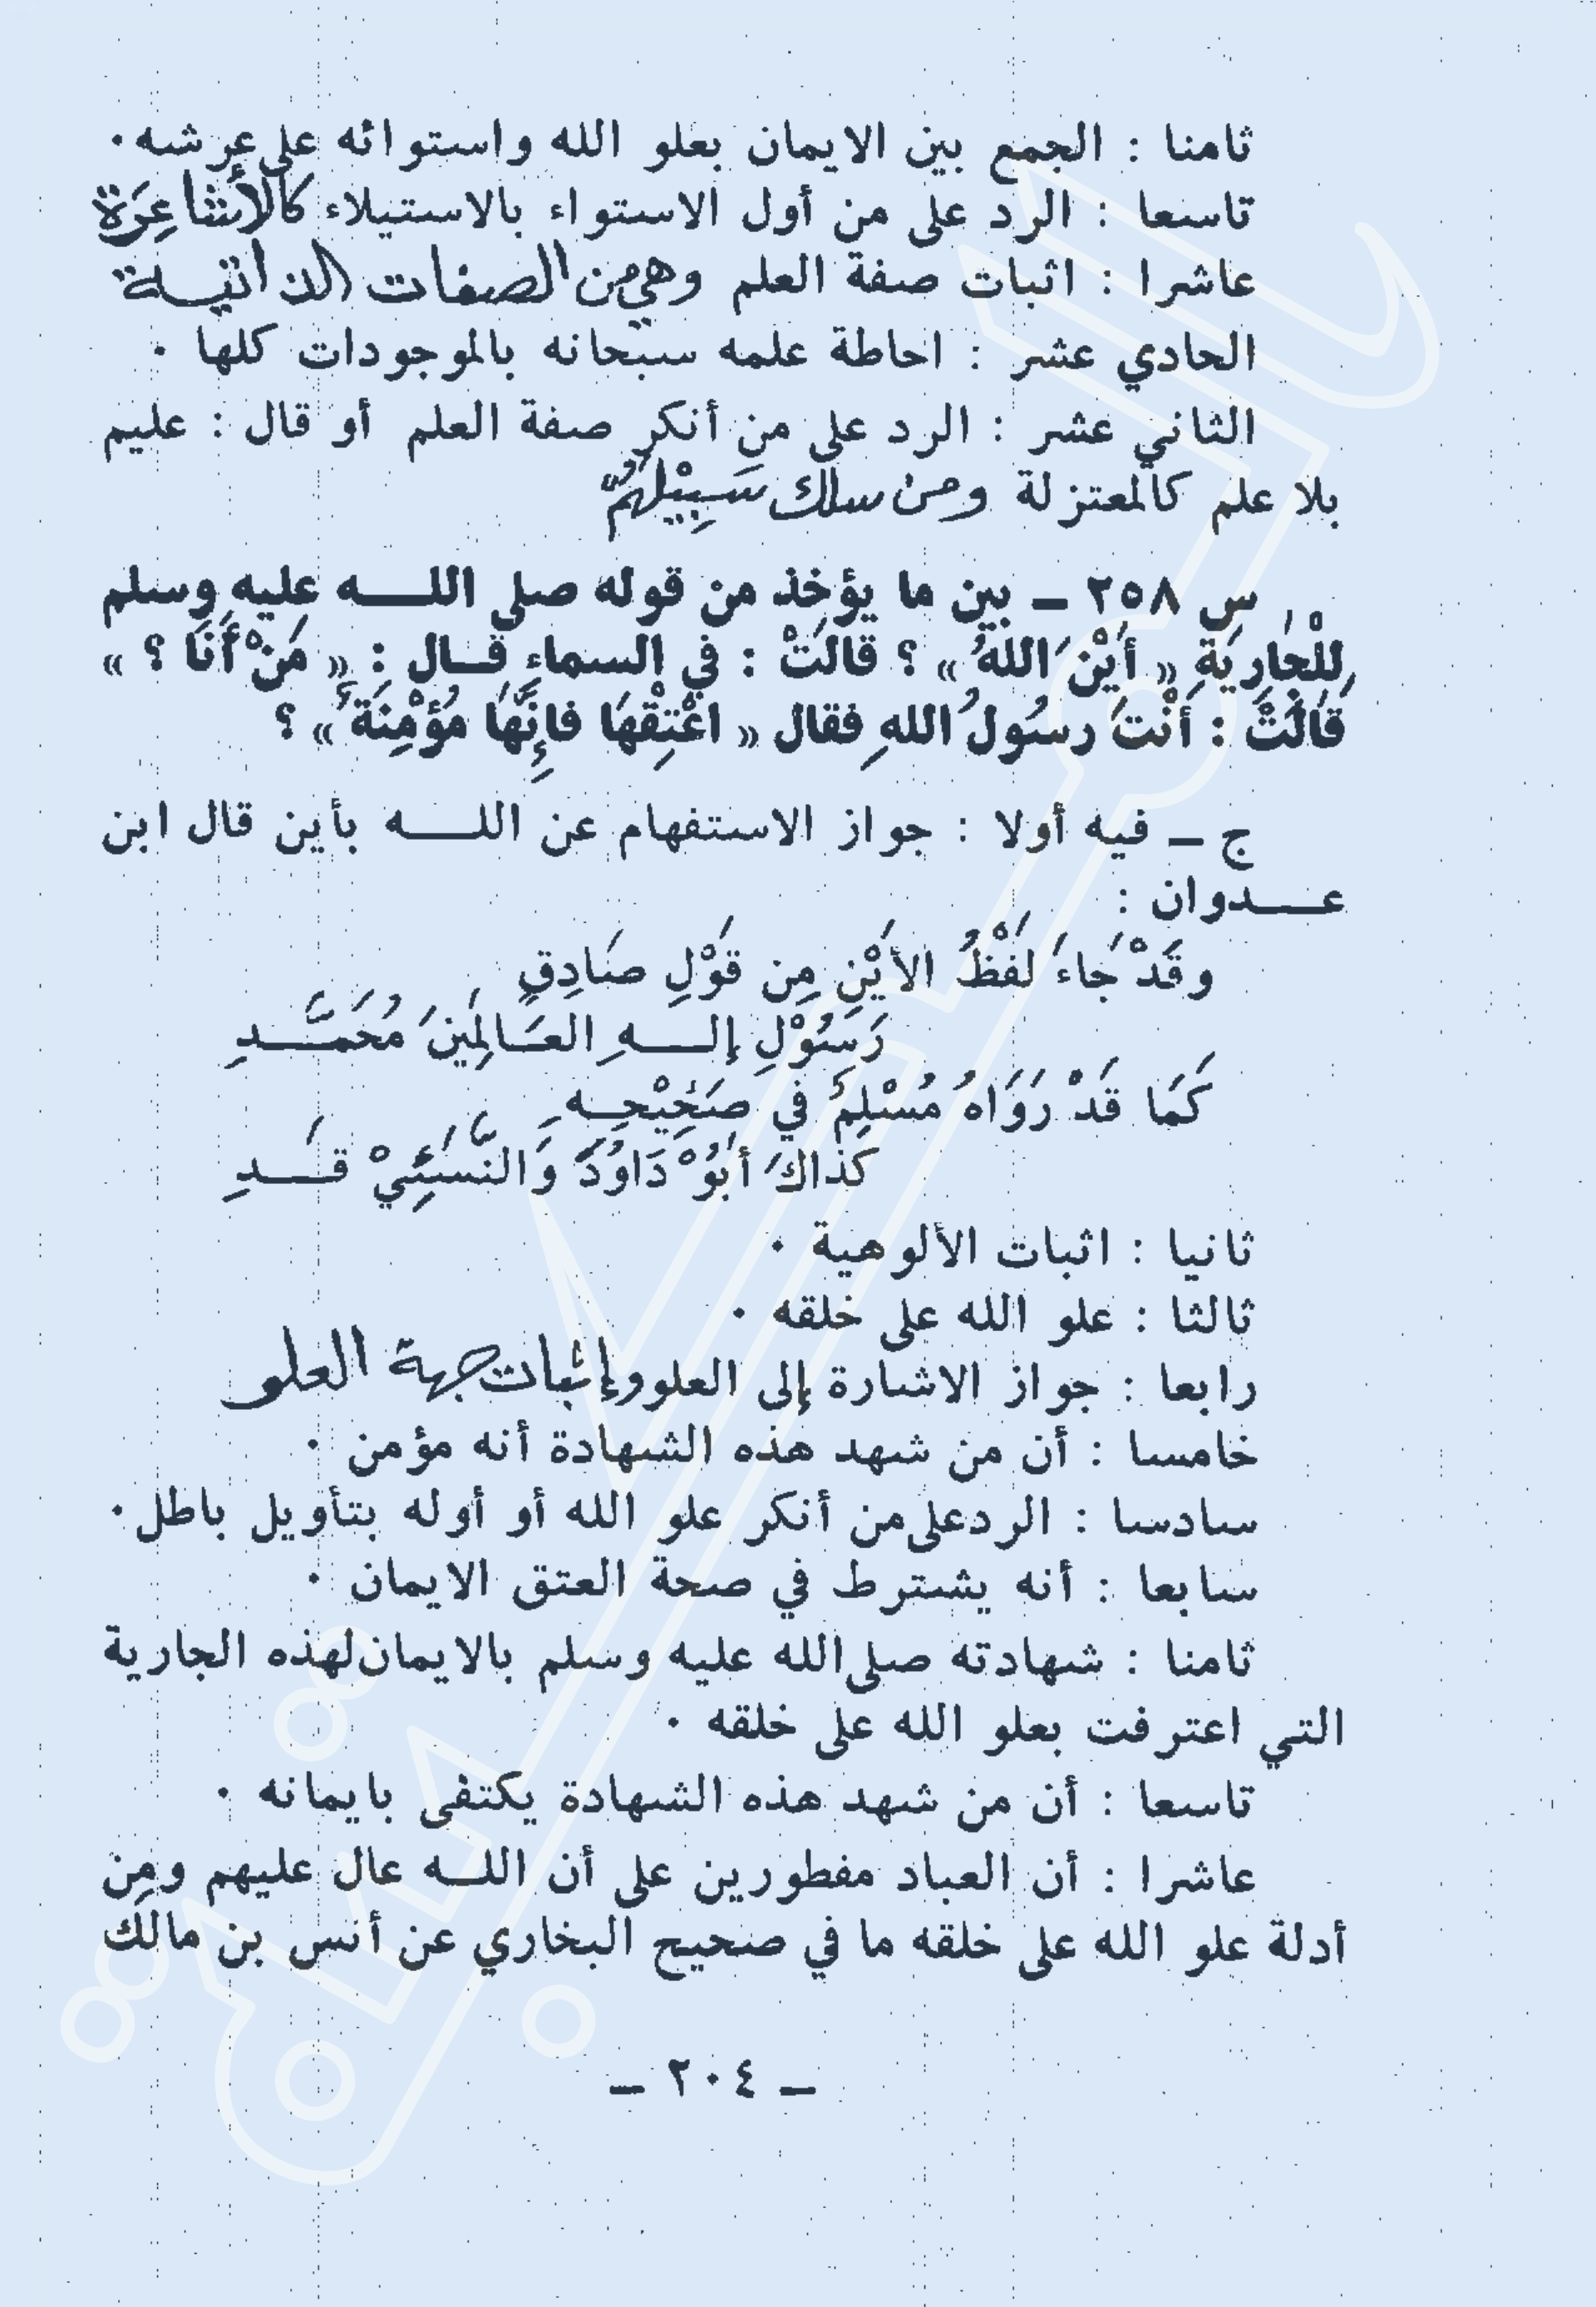 ثامنا : الجمع بين الايمان بعلو الله واستوائه على عرشه .
تاسعا : الرد على من أول الاستواء بالاستيلاء كالأشاعِرَة
عاشرا : اثبات صفة العلم وهي من الصفات الذاتيـة
الحادي عشر : احاطة علمه سبحانه بالموجودات كلها .
الثاني عشر : الرد على من أنكر صفة العلم أو قال : عليم
بلا علم كالمعتزلة ومن سلك سَبِيْلهُمْ
س ٢٥٨ ــ بين ما يؤخذ من قوله صلى اللـــه عليه وسلم
لِلْجارِيَةِ « أَيْنَ اللهُ » ؟ قالتْ : في السماءِ قــال : « مَنْ أَنَا ؟ »
قَالَتْ : أَنْتَ رسُولُ اللهِ فقال « اعْتِقْهَا فإِنَّهَا مُؤْمِنَةٌ » ؟
ج ــ فيه أولا : جواز الاستفهام عن اللـــه بأين قال ابن
عـــدوان :
وقَدْ جَاءَ لَفْظُ الأَيْنِ مِن قَوْلِ صَادِقٍ
رَسُوْلِ إلـــهِ العَــالَمِينَ مُحَمَّـــدِ
كَمَا قَدْ رَوَاهُ مُسْلِمٌ في صَحِيْحِـهِ
كَذَاكَ أَبُوْ دَاوُدَ وَالنَّسَئِيْ قَـــدِ
ثانيا : اثبات الألوهية .
ثالثا : علو الله على خلقه .
رابعا : جواز الاشارة إلى العلو وإثبات جهة العلو
خامسا : أن من شهد هذه الشهادة أنه مؤمن .
سادسا : الرد على من أنكر علو الله أو أوله بتأويل باطل .
سابعا : أنه يشترط في صحة العتق الايمان .
ثامنا : شهادته صلى الله عليه وسلم بالايمان لهذه الجارية
التي اعترفت بعلو الله على خلقه .
تاسعا : أن من شهد هذه الشهادة يكتفى بايمانه .
عاشرا : أن العباد مفطورين على أن اللــه عال عليهم ومِن
أدلة علو الله على خلقه ما في صحيح البخاري عن أنس بن مالك
ــ ٢٠٤ ــ